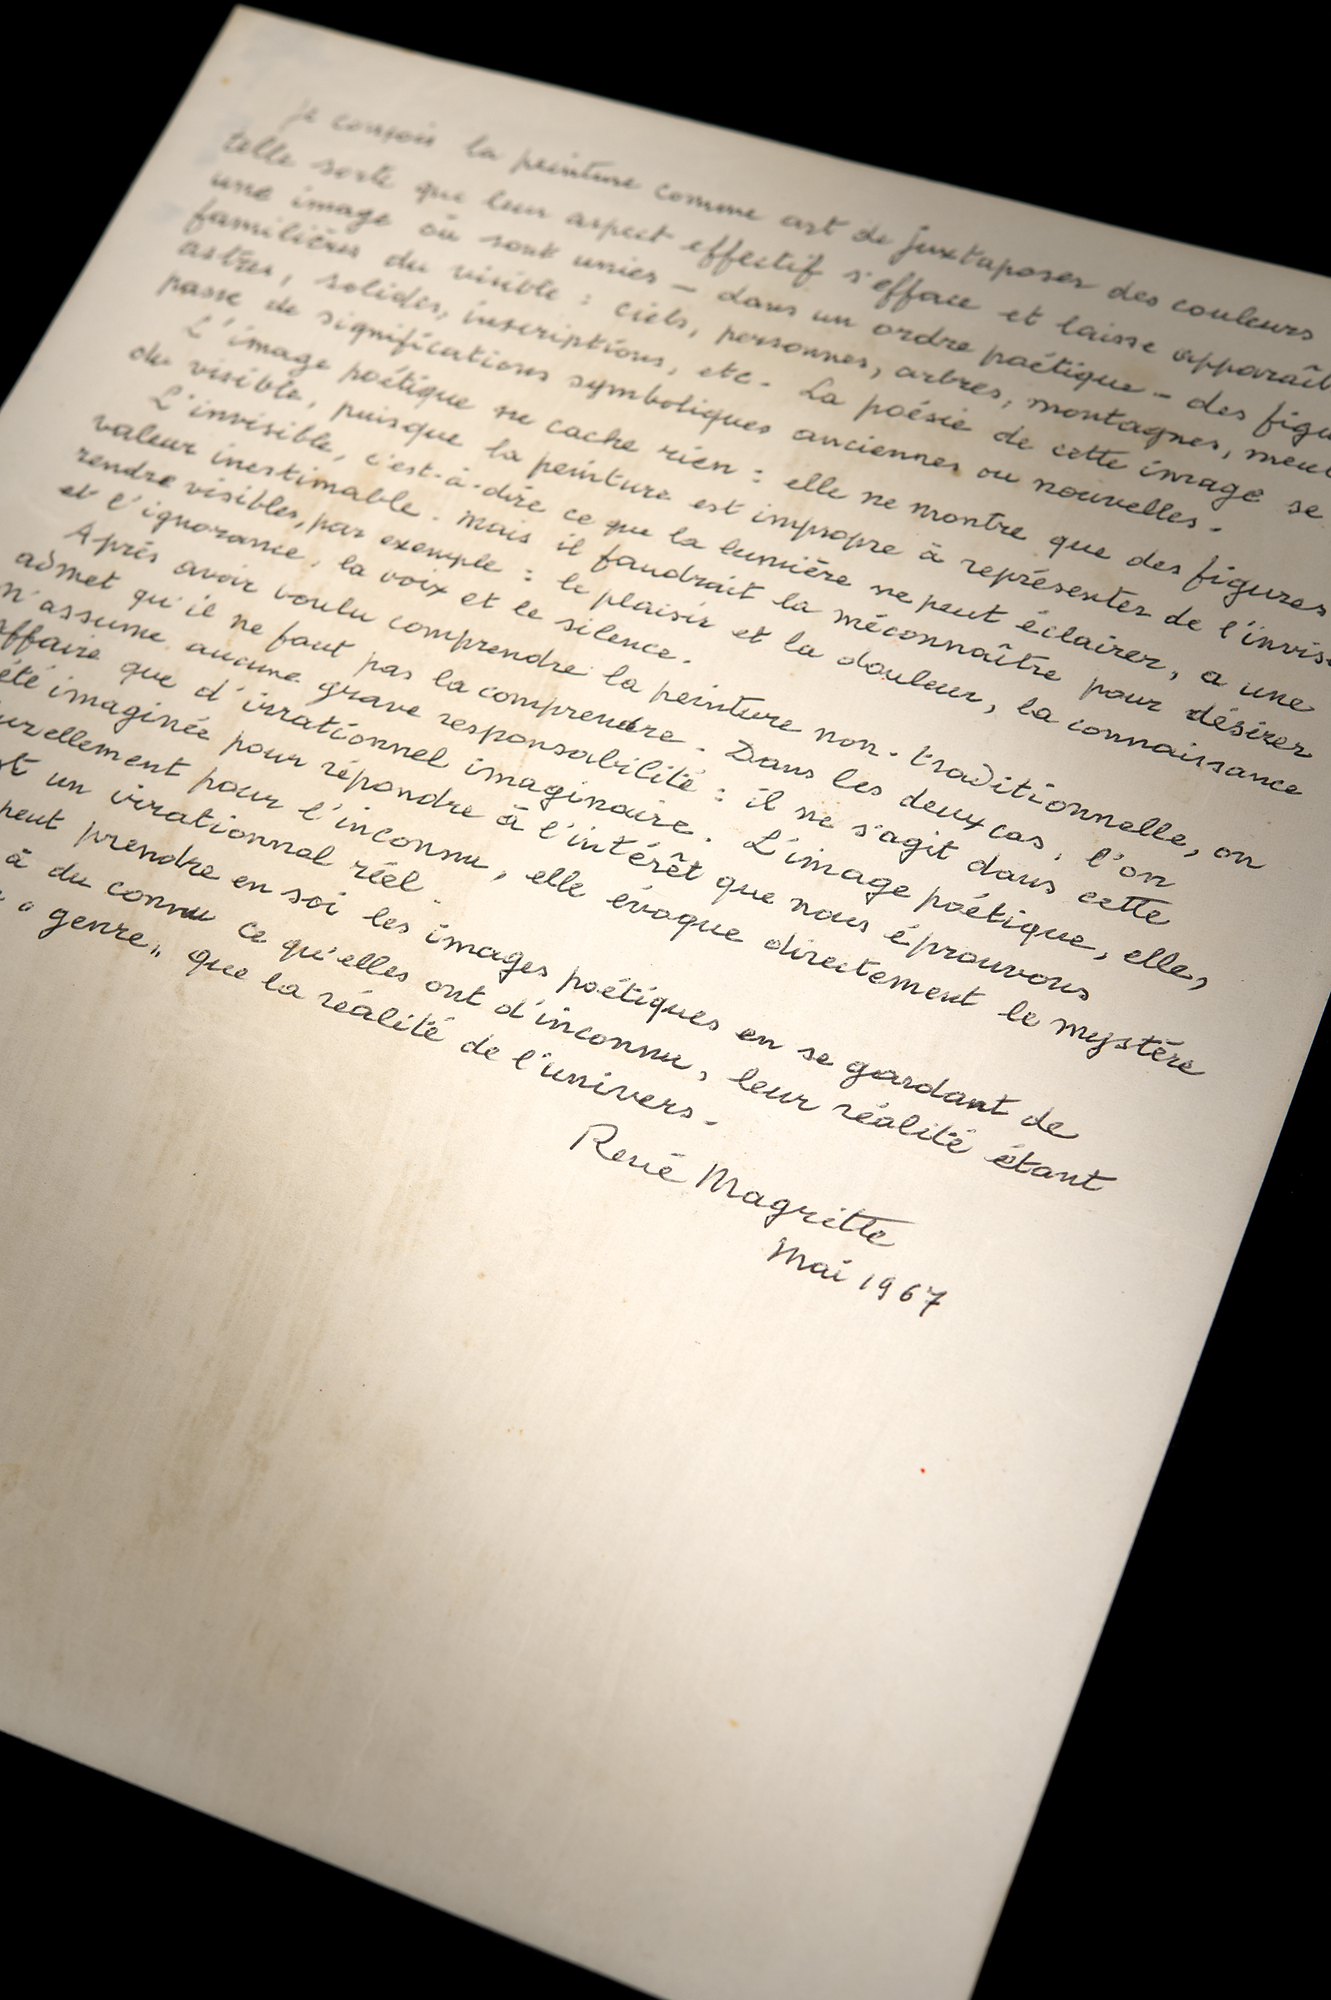 je conçois la peinture comme art de juxtaposer des couleurs
telle sorte que leur aspect effectif s'efface et laisse apparaît
une image où sont unies — dans un ordre poétique — des figu
familières du visible : ciels, personnes, arbres, montagnes, meu
astres, solides, inscriptions, etc. La poésie de cette image se
passe de significations symboliques anciennes ou nouvelles.
L'image poétique ne cache rien : elle ne montre que des figures
du visible, puisque la peinture est impropre à représenter de l'invis
L'invisible, c'est-à-dire ce que la lumière ne peut éclairer, a une
valeur inestimable. Mais il faudrait la méconnaître pour désirer
rendre visibles, par exemple : le plaisir et la douleur, la connaissance
et l'ignorance, la voix et le silence.
Après avoir voulu comprendre la peinture non-traditionnelle, on
admet qu'il ne faut pas la comprendre. Dans les deux cas, l'on
n'assume aucune grave responsabilité : il ne s'agit dans cette
affaire que d'irrationnel imaginaire. L'image poétique, elle,
été imaginée pour répondre à l'intérêt que nous éprouvons
urellement pour l'inconnu, elle évoque directement le mystère
st un irrationnel réel
peut prendre en soi les images poétiques en se gardant de
à du connu ce qu'elles ont d'inconnu, leur réalité étant
"genre" que la réalité de l'univers.
René Magritte
Mai 1967